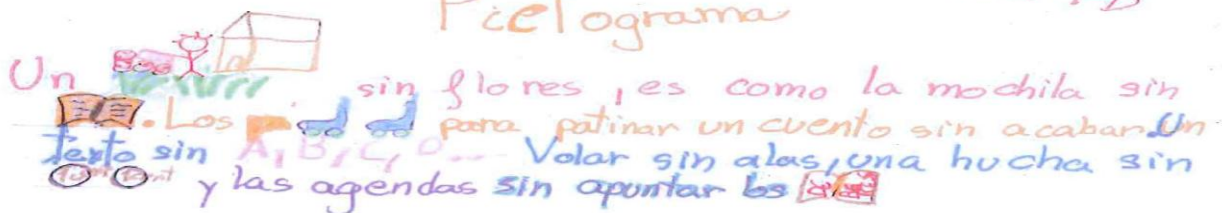 Pictograma
Un sin flores, es como la mochila sin
. Los para patinar un cuento sin acabar. Un
texto sin A, B, C, D... Volar sin alas, una hucha sin
y las agendas sin apuntar los